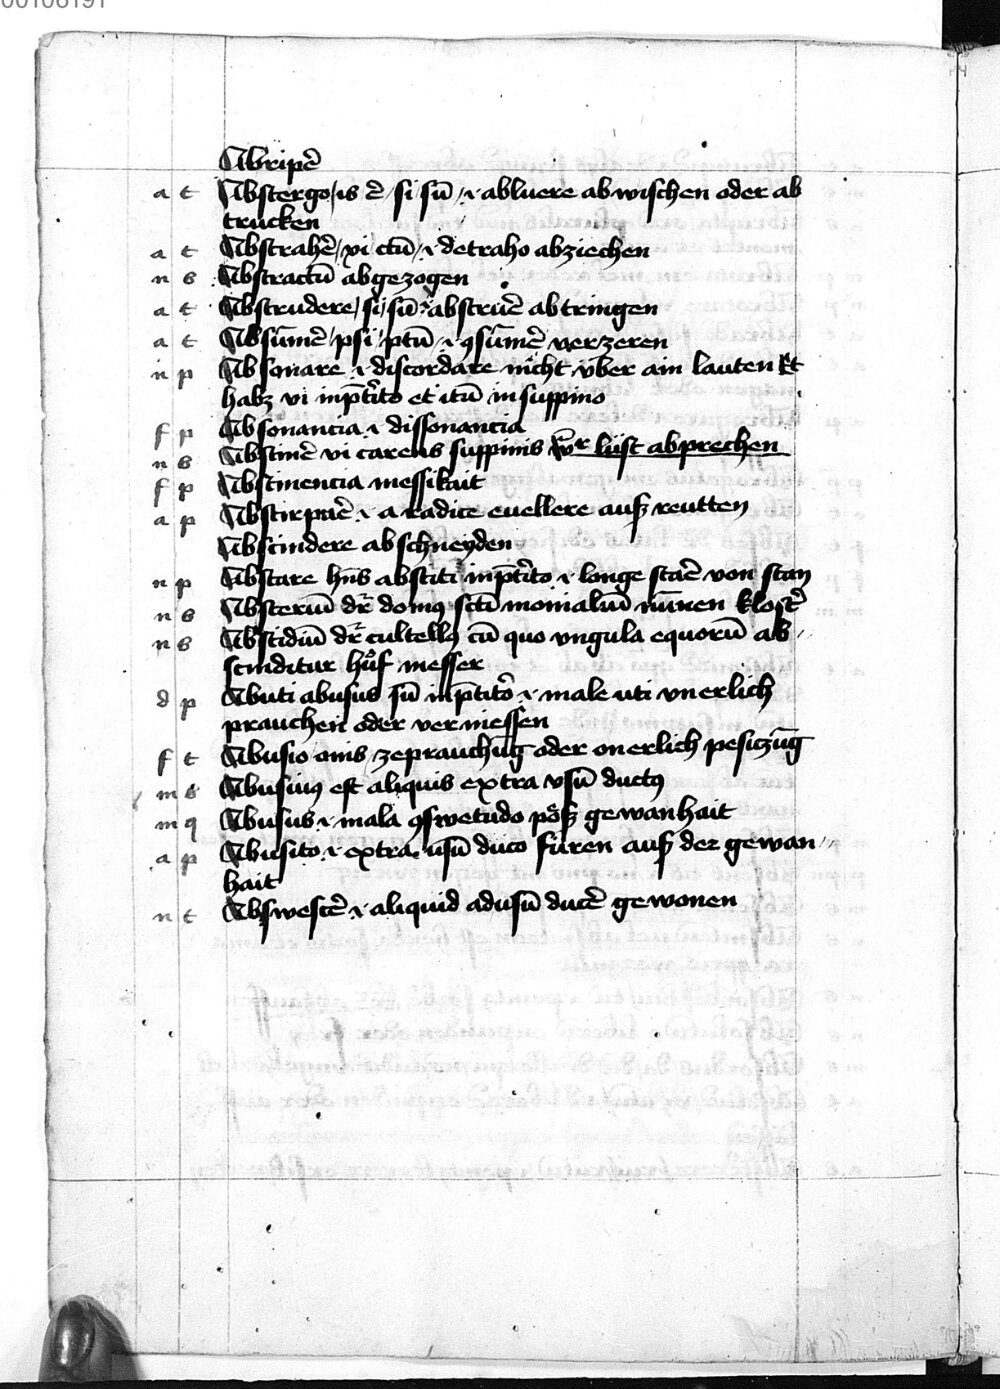 00106191
Abripē
a t Abstergo/is ē/si/sū/ .i. abluere abwischen oder ab
trucken
a t Abstrahē/xi/ctū/ .i. detraho abziechen
n s Abstractū abgezogen
a t Abstrudere/si/sū .i. abstruē abtringen
a t Absūmē/psi/ptū .i. ꝯsūmē verzeren
n p Absonare .i. discordare nicht vber ain lauten et
habz ui inp̄tito et itū in suppino
f p Absonancia .i. dissonancia
n s Abstinē vi carens suppinis lust abprechen
f p Abstinencia messikait
a p Abstirpaē .i. a radice euellere auſz reutten
Abscindere abschneyden
n p Abstare hn̄s abstiti inp̄tito .i. longe staē von stan
n s Absteriū dr̄ domꝰ sctī monialiū nūnen klostē
n s Abstidiū dr̄ cultellꝰ cū quo vngula equorū ab
scinditur hůf messer
d p Abuti abusus sū inp̄tito .i. male uti vnerlich
prauchen oder verniessen
f t Abusio onis zeprauchūg oder onerlich pesitzūg
m s Abusiuꝰ est aliquis extra vsū ductꝰ
m q Abusus .i. mala ꝯswetudo pőſz gewanhait
a p Abusito .i. extra usū duco füren auſz der gewan
hait
n t Abswescē .i. aliquid ad usū ducē gewonen